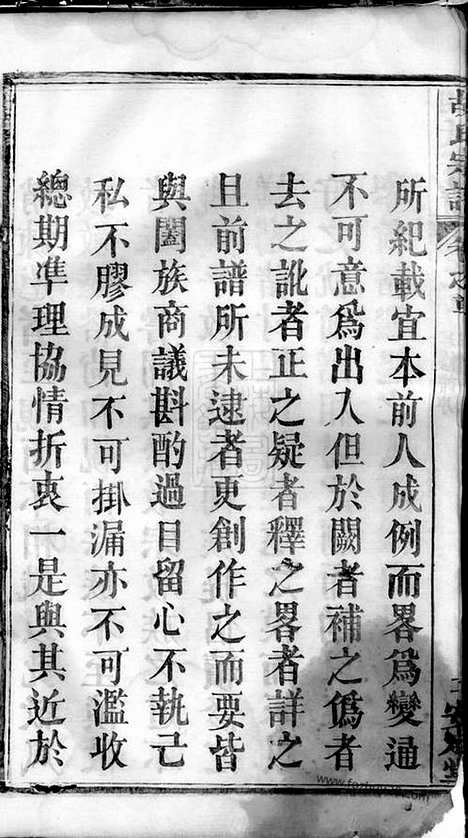 所紀載宜本前人成例而畧爲變通
不可意爲出入但於闕者補之僞者
去之訛者正之疑者釋之畧者詳之
且前譜所未逮者更創作之而要皆
與闔族商議斟酌過目留心不執己
私不膠成見不可掛漏亦不可濫收
總期準理協情折衷一是與其近於